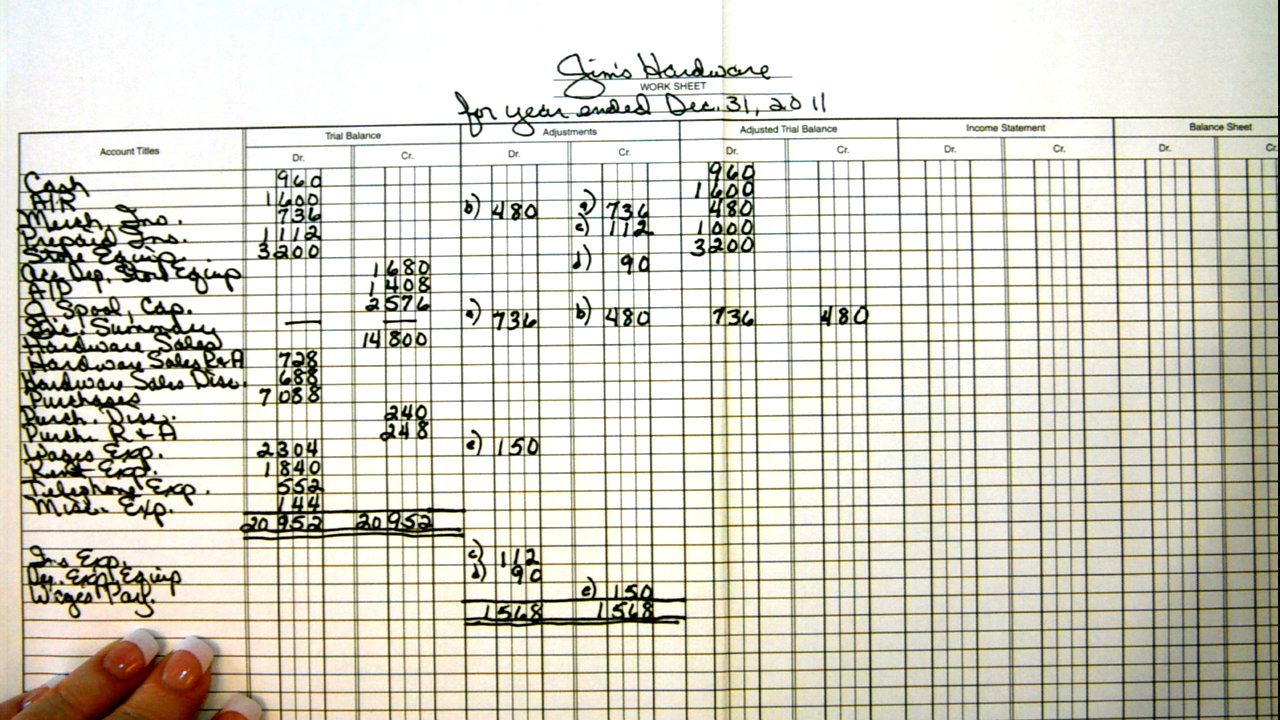 Jim's Hardware
WORK SHEET
for year ended Dec. 31, 2011
Account Titles Trial Balance Adjustments Adjusted Trial Balance Income Statement Balance Sheet
Dr. Cr. Dr. Cr. Dr. Cr. Dr. Cr. Dr. Cr.
Cash 960 960
A/R 1600 1600
Merch. Inv. 736 b) 480 a) 736 480
Prepaid Ins. 1112 c) 112 1000
Store Equip. 3200 3200
Acc. Dep. Store Equip 1680 d) 90
A/P 1408
J. Spool, Cap. 2576
Inc. Summary — — a) 736 b) 480 736 480
Hardware Sales 14800
Hardware Sales R+A 728
Hardware Sales Disc. 688
Purchases 7088
Purch. Disc. 240
Purch. R+A 248
Wages Exp. 2304 e) 150
Rent Exp. 1840
Telephone Exp. 552
Misc. Exp. 144
20952 20952
Ins Exp. c) 112
Dep. Exp. Equip d) 90
Wages Pay. e) 150
1568 1568